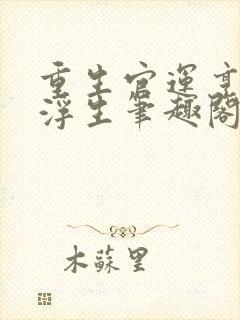 重生官運亨
浮生筆趣閣
木蘇里